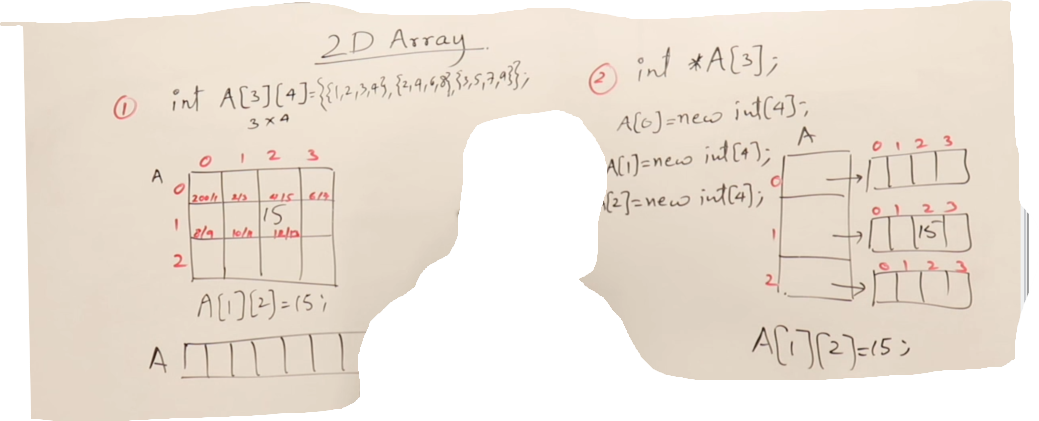 2D Array
① int A[3][4]={{1,2,3,4},{2,4,6,8},{3,5,7,9}};
3×4
0 1 2 3
A
0
200/1 2/3 4/5 6/7
1 15
8/9 10/11 12/13
2
A[1][2]=15;
A
② int *A[3];
A[0]=new int[4];
A[1]=new int[4];
[2]=new int[4];
A
0 1 2 3
0
0 1 2 3
1 15
0 1 2 3
2
A[1][2]=15;